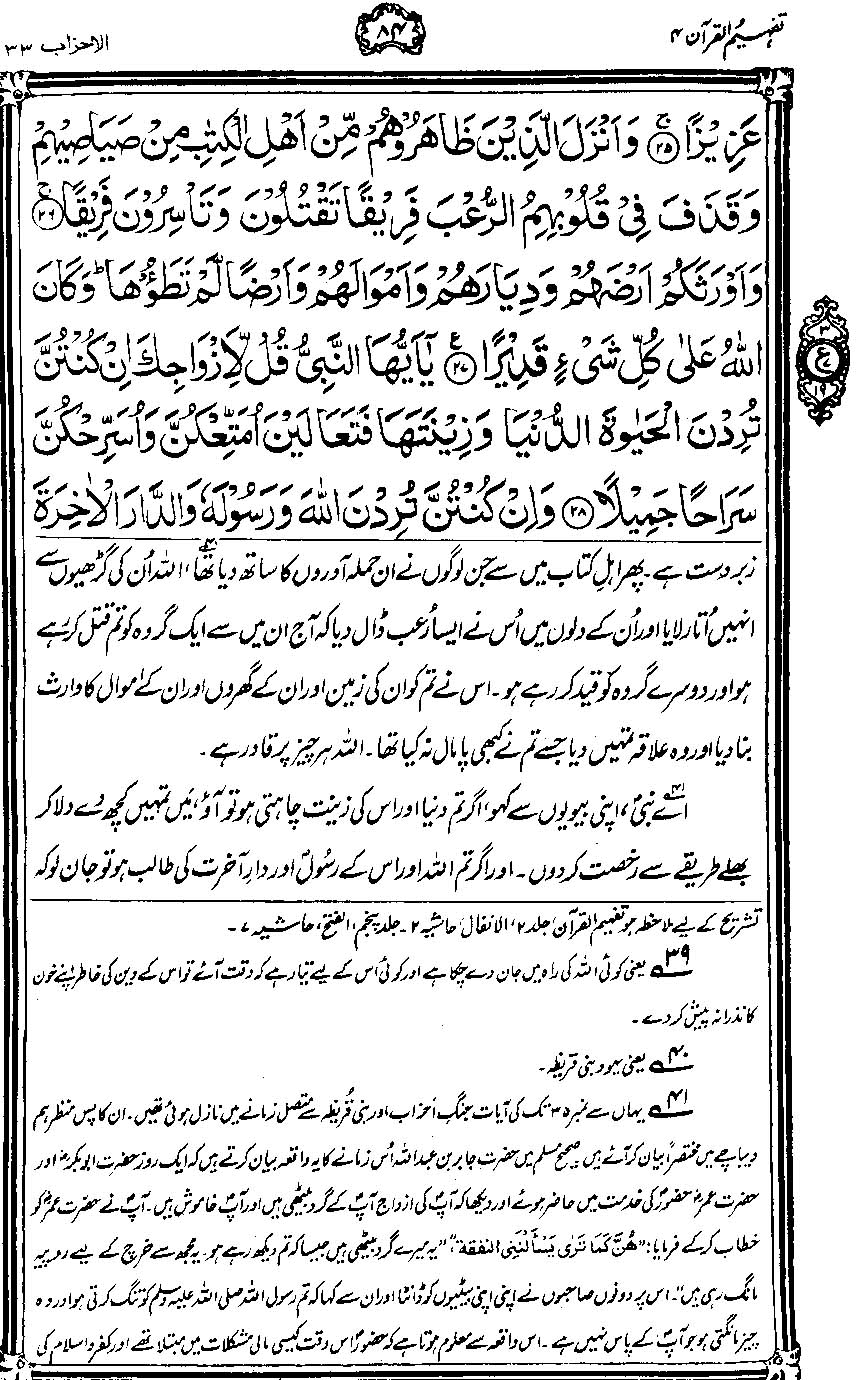 تفہیم القرآن ۴
۸۴
الاحزاب ۳۳
عَزِيْزًا ۚ۲۵ وَاَنْزَلَ الَّذِيْنَ ظَاهَرُوْهُمْ مِّنْ اَهْلِ الْكِتٰبِ مِنْ صَيَاصِيْهِمْ
وَقَذَفَ فِيْ قُلُوْبِهِمُ الرُّعْبَ فَرِيْقًا تَقْتُلُوْنَ وَتَاْسِرُوْنَ فَرِيْقًا ۚ۲۶
وَاَوْرَثَكُمْ اَرْضَهُمْ وَدِيَارَهُمْ وَاَمْوَالَهُمْ وَاَرْضًا لَّمْ تَطَـُٔوْهَا ؕ وَكَانَ
اللّٰهُ عَلٰى كُلِّ شَيْءٍ قَدِيْرًا ۠۲۷ يٰۤاَيُّهَا النَّبِيُّ قُلْ لِّاَزْوَاجِكَ اِنْ كُنْتُنَّ
تُرِدْنَ الْحَيٰوةَ الدُّنْيَا وَزِيْنَتَهَا فَتَعَالَيْنَ اُمَتِّعْكُنَّ وَاُسَرِّحْكُنَّ
سَرَاحًا جَمِيْلًا ۲۸ وَاِنْ كُنْتُنَّ تُرِدْنَ اللّٰهَ وَرَسُوْلَهٗ وَالدَّارَ الْاٰخِرَةَ
۳
ع
۱۹
زبردست ہے۔ پھر اہلِ کتاب میں سے جن لوگوں نے ان حملہ آوروں کا ساتھ دیا تھا۴۰، اللہ اُن کی گڑھیوں سے
انہیں اُتار لایا اور اُن کے دلوں میں اُس نے ایسا رُعب ڈال دیا کہ آج ان میں سے ایک گروہ کو تم قتل کر رہے
ہو اور دوسرے گروہ کو قید کر رہے ہو۔ اس نے تم کو ان کی زمین اور ان کے گھروں اور ان کے اموال کا وارث
بنا دیا اور وہ علاقہ تمہیں دیا جسے تم نے کبھی پامال نہ کیا تھا۔ اللہ ہر چیز پر قادر ہے۔
اے نبیؐ۴۱، اپنی بیویوں سے کہو، اگر تم دنیا اور اس کی زینت چاہتی ہو تو آؤ، میں تمہیں کچھ دے دلا کر
بھلے طریقے سے رخصت کر دوں۔ اور اگر تم اللہ اور اس کے رسُولؐ اور دارِ آخرت کی طالب ہو تو جان لو کہ
تشریح کے لیے ملاحظہ ہو تفہیم القرآن، جلد ۲، الانفال، حاشیہ ۲۔ جلد پنجم، الفتح، حاشیہ ۷۔
۳۹ یعنی کوئی اللہ کی راہ میں جان دے چکا ہے اور کوئی اس کے لیے تیار ہے کہ وقت آئے تو اس کے دین کی خاطر اپنے خون
کا نذرانہ پیش کر دے۔
۴۰ یعنی یہود بنی قریظہ۔
۴۱ یہاں سے نمبر ۳۵ تک کی آیات جنگِ احزاب اور بنی قُریظہ سے متصل زمانے میں نازل ہوئی تھیں۔ ان کا پس منظر ہم
دیباچے میں مختصراً بیان کر آئے ہیں۔ صحیح مسلم میں حضرت جابر بن عبداللہ اُس زمانے کا یہ واقعہ بیان کرتے ہیں کہ ایک روز حضرت ابوبکرؓ اور
حضرت عمرؓ حضورؐ کی خدمت میں حاضر ہوئے اور دیکھا کہ آپؐ کی ازواج آپؐ کے گرد بیٹھی ہیں اور آپؐ خاموش ہیں۔ آپؐ نے حضرت عمرؓ کو
خطاب کر کے فرمایا: "ھُنَّ کَمَا تَرٰی یَسْأَلْنَنِی النفقة"، "یہ میرے گرد بیٹھی ہیں جیسا کہ تم دیکھ رہے ہو۔ یہ مجھ سے خرچ کے لیے روپیہ
مانگ رہی ہیں"۔ اس پر دونوں صاحبوں نے اپنی اپنی بیٹیوں کو ڈانٹا اور ان سے کہا کہ تم رسول اللہ صلی اللہ علیہ وسلم کو تنگ کرتی ہو اور وہ
چیز مانگتی ہو جو آپؐ کے پاس نہیں ہے۔ اس واقعہ سے معلوم ہوتا ہے کہ حضورؐ اس وقت کیسی مالی مشکلات میں مبتلا تھے اور کفر و اسلام کی